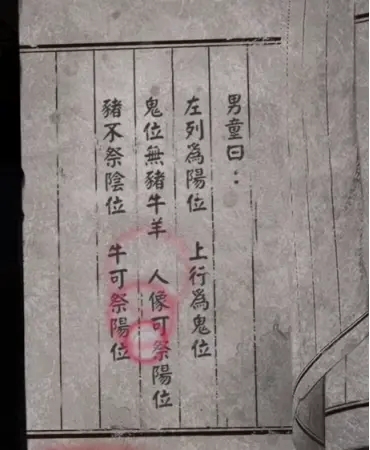 男童曰：
左列為陽位　上行為鬼位
鬼位無豬牛羊　人像可祭陽位
豬不祭陰位　牛可祭陽位